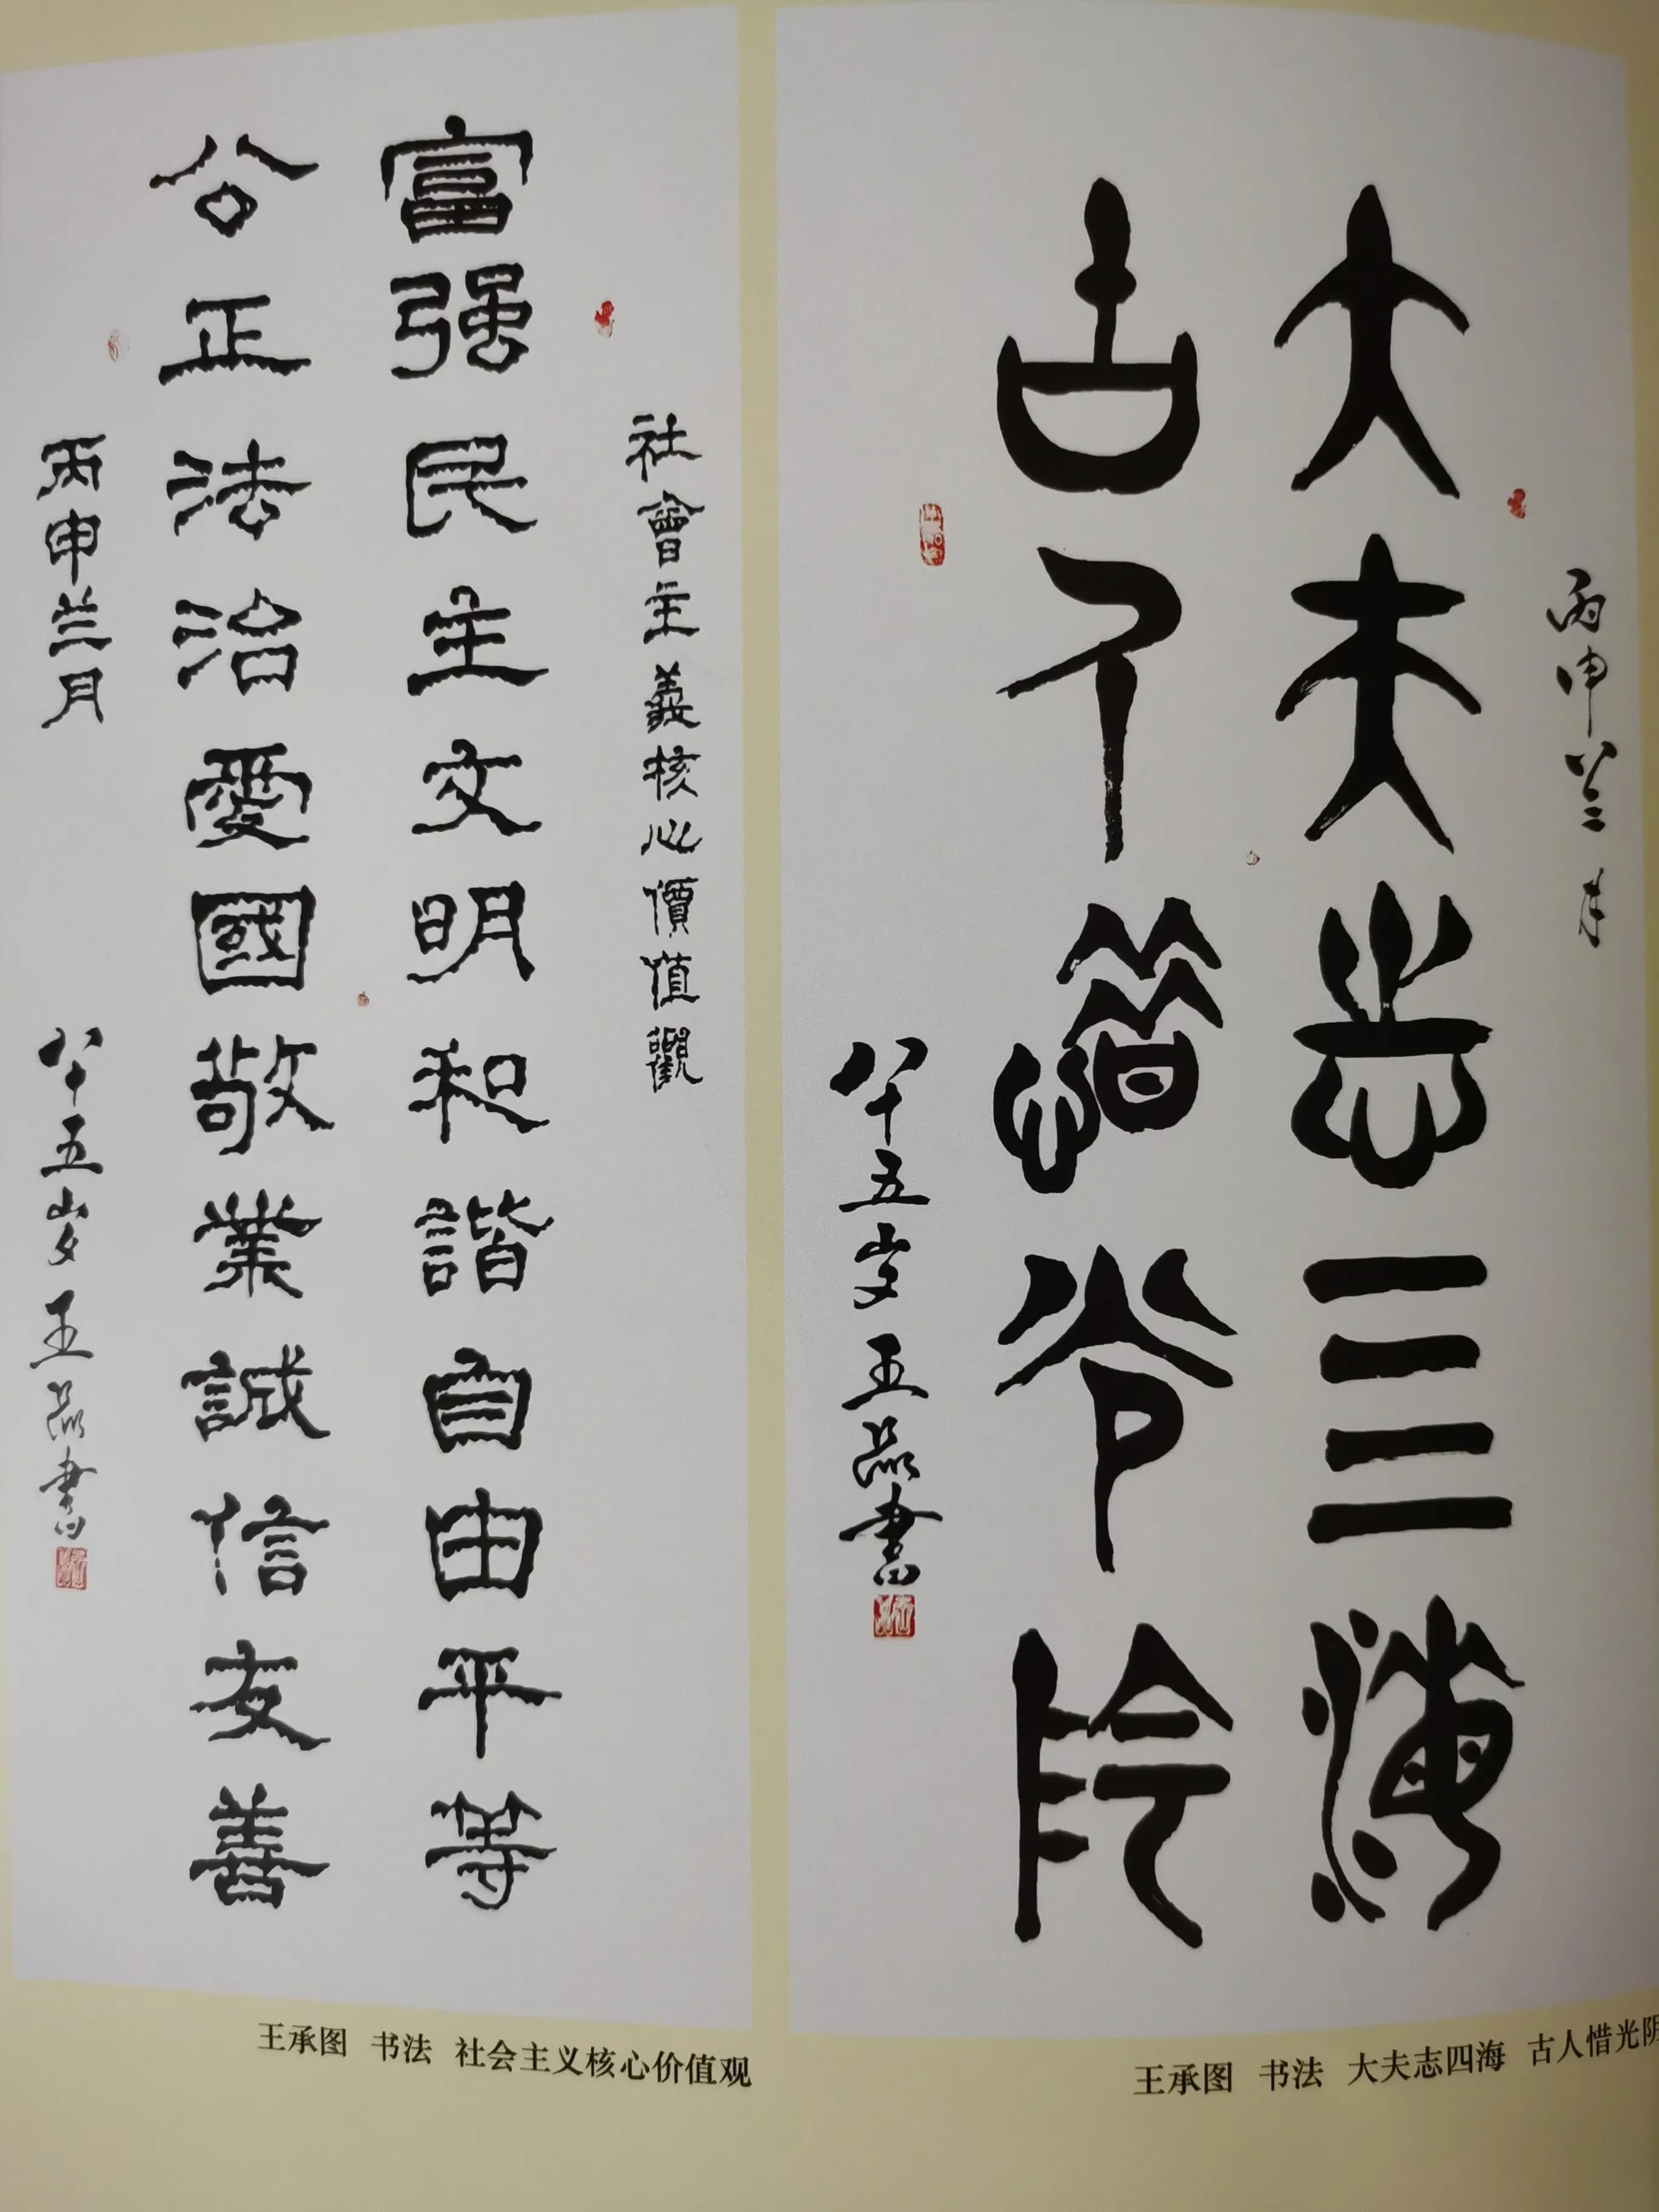 丙申兰月
大夫志三海
古人惜光阴
八十五岁王承图书
社會主義核心價值觀
富强民主文明和諧自由平等
公正法治愛國敬業誠信友善
丙申兰月
八十五岁王承图书
王承图 书法 大夫志四海 古人惜光阴
王承图 书法 社会主义核心价值观